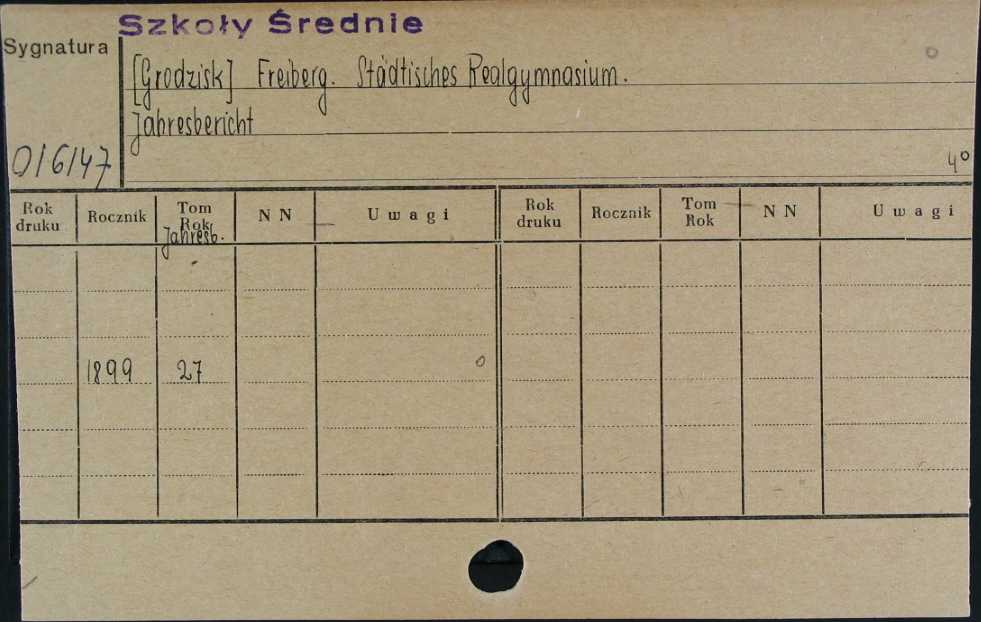 Szkoły Średnie
Sygnatura
[Grodzisk] Freiberg. Städtisches Realgymnasium.
Jahresbericht
0/6/47
4°
Rok druku Rocznik Tom Rok NN Uwagi Rok druku Rocznik Tom Rok NN Uwagi
Jahresb.
1899 27